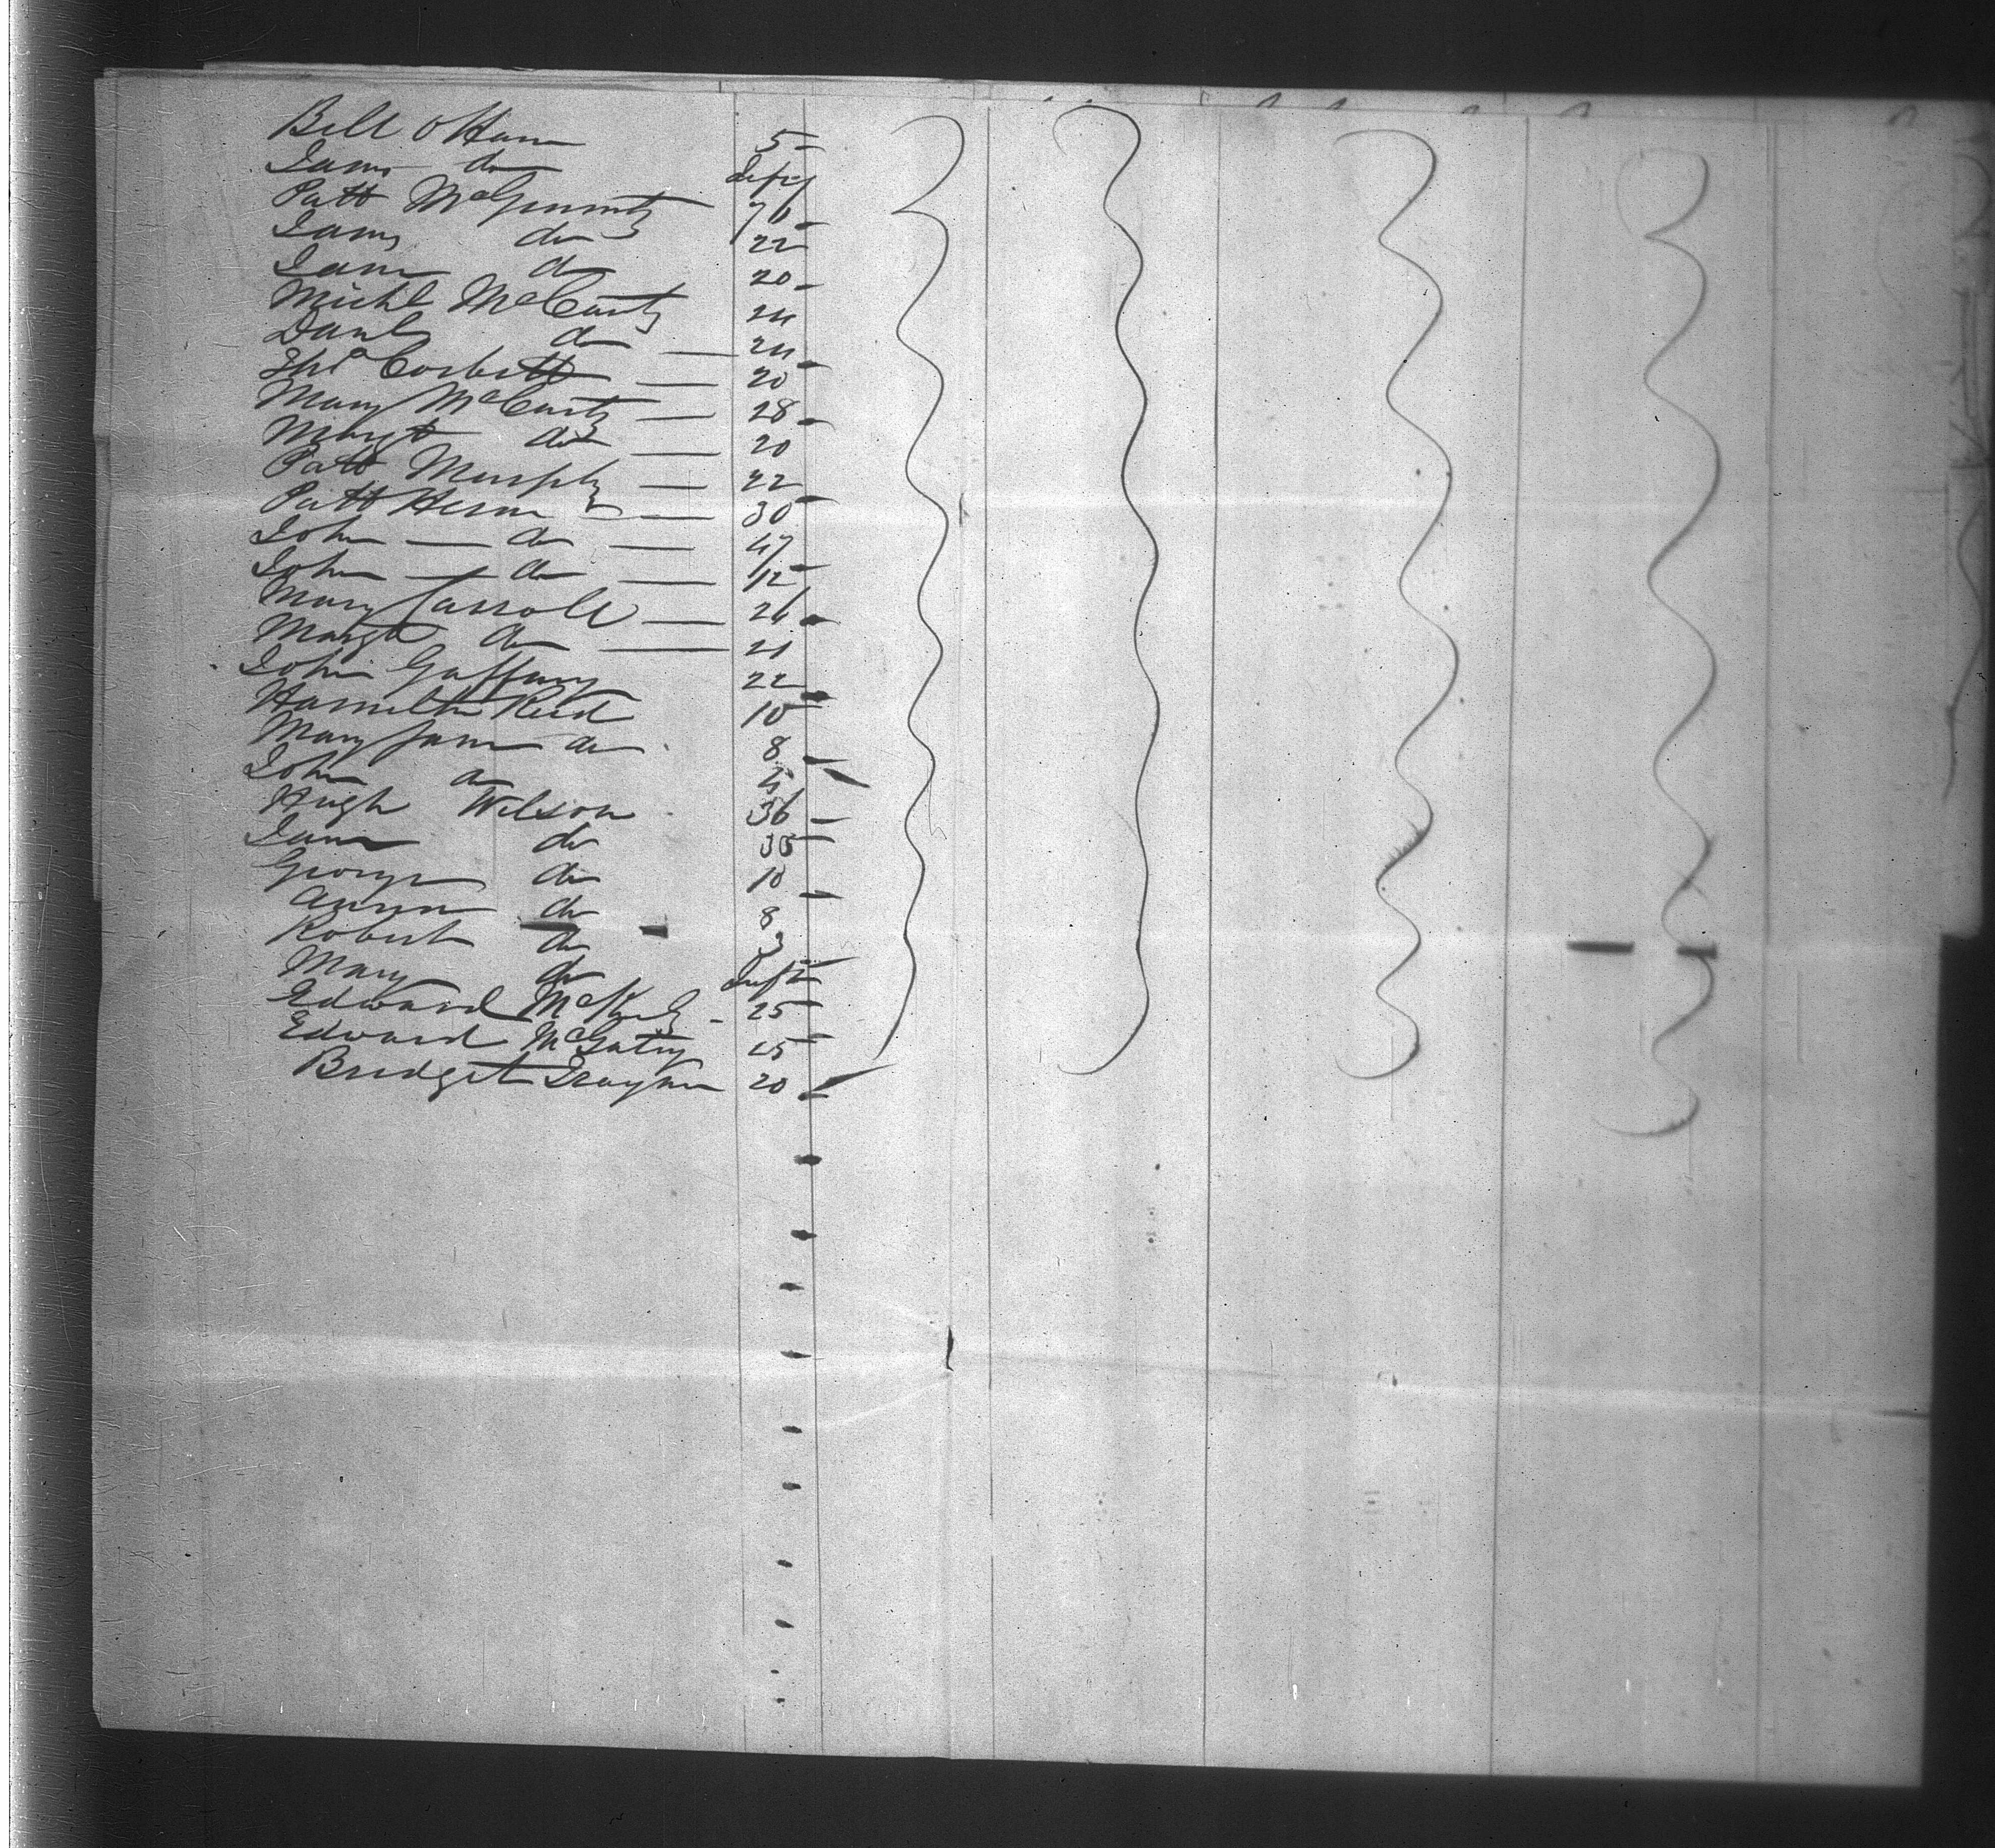 Bell O'Hara 5
James do Infy
Patt McGinnity 70
James do 22
Jane do 20
Michl McCarty 24
Danl do 24
Corbett 20
Mary McCarty 28
Margt do 20
Patt Murphy 22
Patt Hern 30
John do 47
John do 12
Mary Carroll 26
Margt do 21
John Gaffney 22
Hamilton Reed 10
Mary Jane do 8
John do 4
Hugh Wilson 36
Jane do 35
George do 10
Ann do 8
Robert do 3
Mary do Inft
Edward 25
Edward 25
Bridget 20